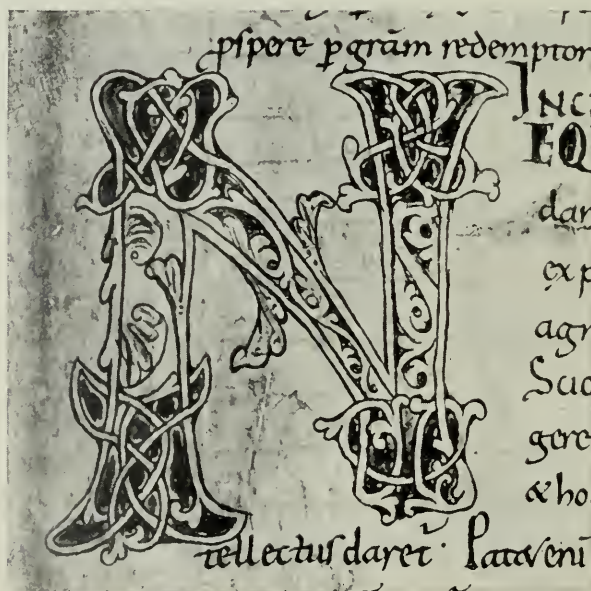 ꝓspere ꝑ grām redemptor
N
INCI
EQ
dar
exp
agr
Scio
gere
&ho
tellectus daret̄· Pataveni